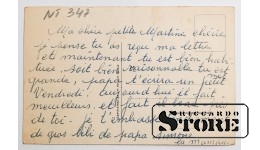 Nº 347
Ma chère petite Martine chérie
je pense tu as reçu ma lettre
et maintenant tu est bien
soit bien raisonnable tu est
grande, papa t'ecrira un petit
Vendredi, aujourd'hui il fait
meilleur, et il fait
de toi. je t'embrasse
de gros bibi de papa
ta maman
RICCARDO
STORE